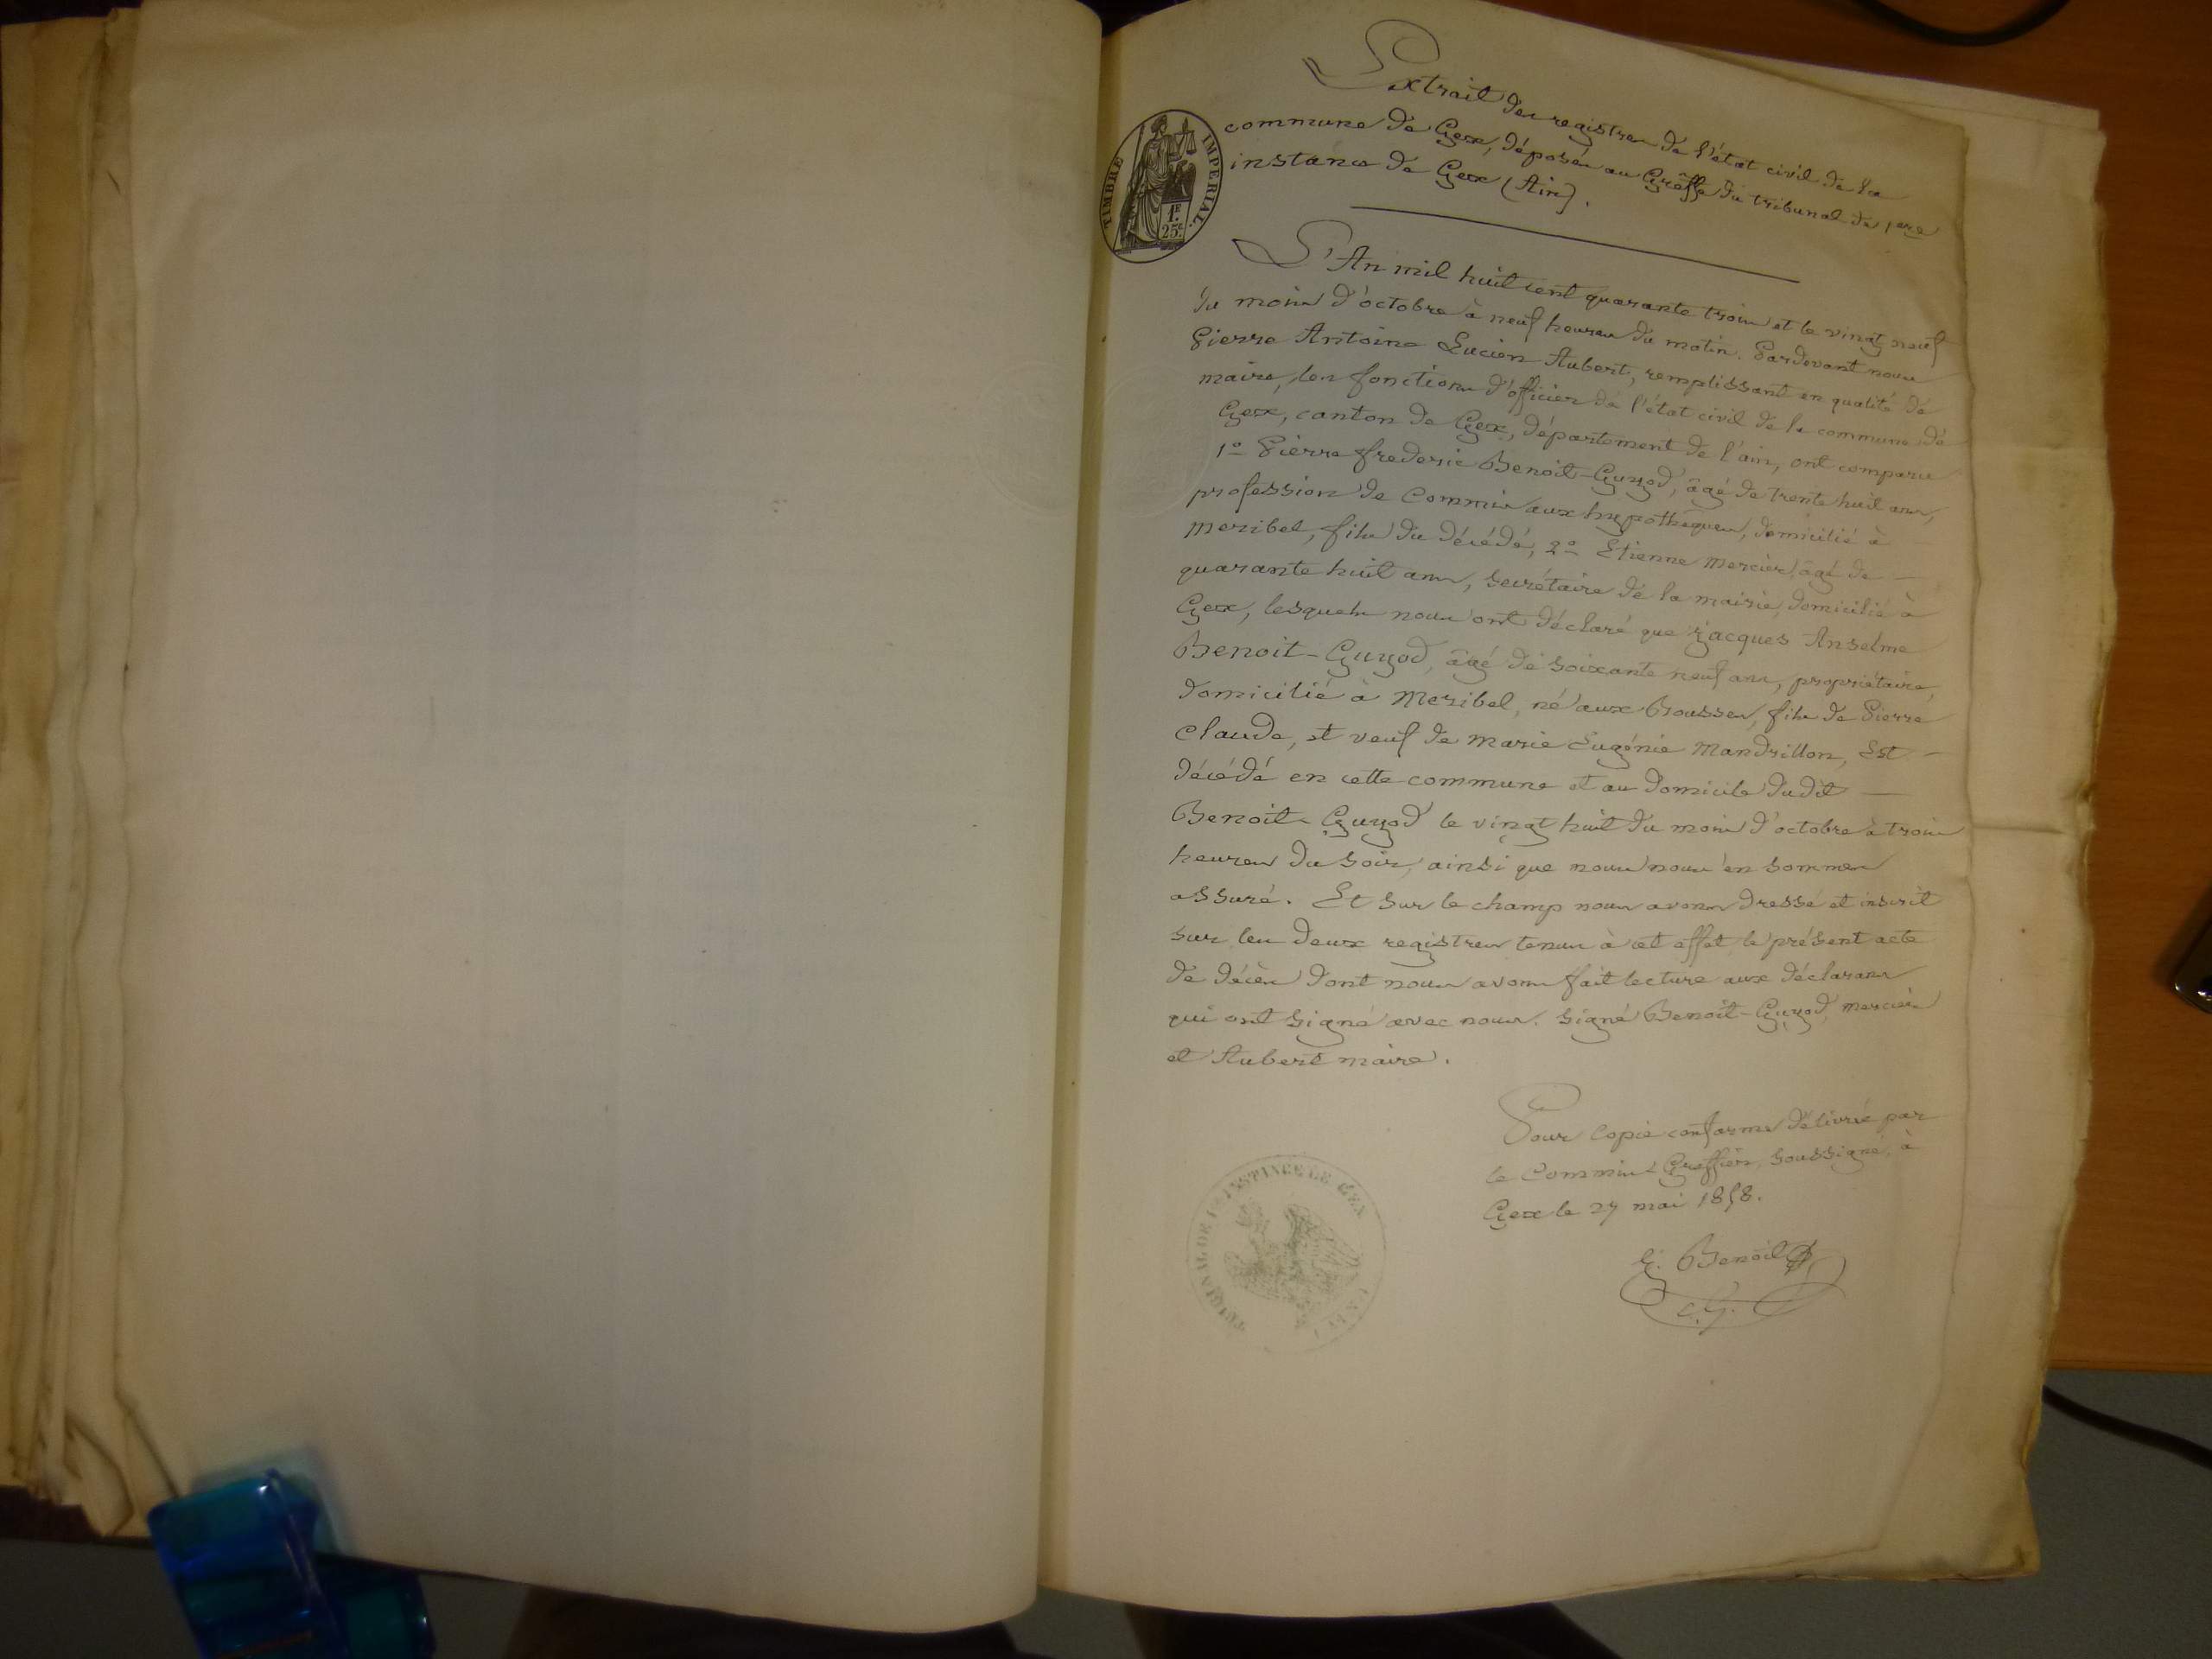 Extrait des registres de l'état civil de la
commune de Gex, déposés au Greffe du tribunal de 1ère
instance de Gex (Ain).
TIMBRE IMPERIAL
1F.
25c
L'An mil huit cent quarante trois et le vingt neuf
du mois d'octobre à neuf heures du matin. Pardevant nous
Pierre Antoine Lucien Aubert, remplissant en qualité de
maire, les fonctions d'officier de l'état civil de la commune de
Gex, canton de Gex, département de l'ain, ont comparu
1o Pierre frederic Benoit-Guyod, âgé de trente huit ans,
profession de Commis aux hypothèques, domicilié à
Meribel, fils du décédé, 2o Etienne Mercier, âgé de
quarante huit ans, secrétaire de la mairie, domicilié à
Gex, lesquels nous ont déclaré que Jacques Anselme
Benoit-Guyod, âgé de soixante neuf ans, propriétaire,
domicilié à Meribel, né aux Rousses, fils de Pierre
Claude, et veuf de Marie Eugénie Mandrillon, Est
décédé en cette commune et au domicile dudit
Benoit-Guyod le vingt huit du mois d'octobre à trois
heures du soir, ainsi que nous nous en sommes
assuré. Et sur le champ nous avons dressé et inscrit
sur les deux registres tenus à cet effet le présent acte
de décès dont nous avons fait lecture aux déclarans
qui ont signé avec nous. signé Benoit-Guyod, Mercier
et Aubert maire.
Pour Copie conforme délivré par
le Commis Greffier, soussigné, à
Gex le 27 mai 1858.
Benoit
C. G.
TRIBUNAL DE 1RE INSTANCE DE GEX